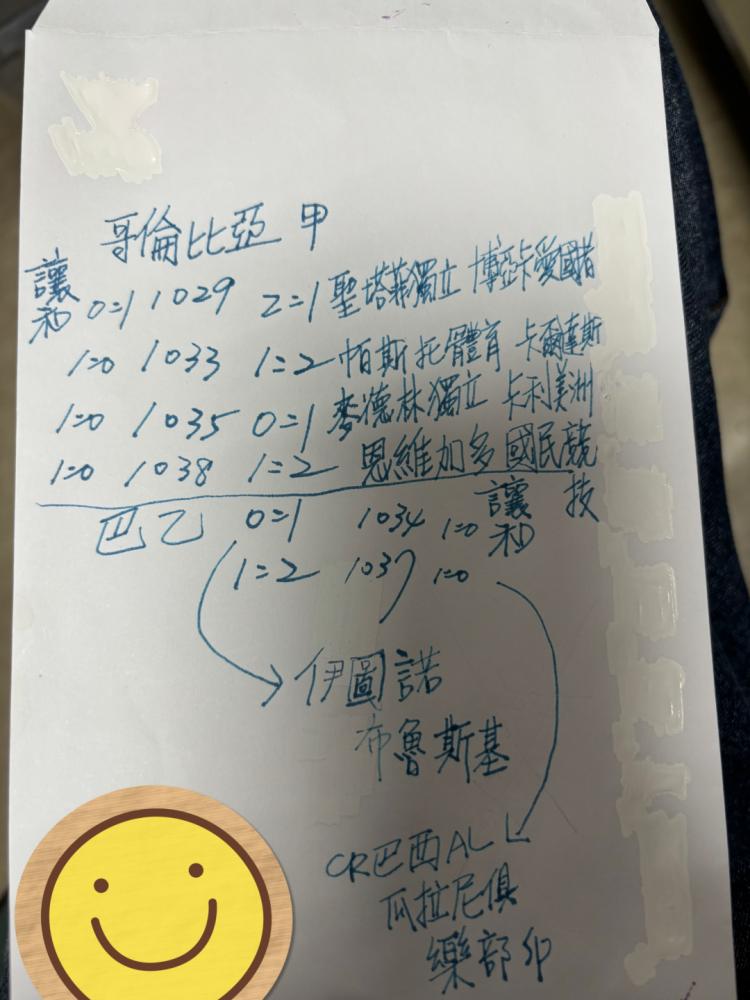 哥倫比亞 甲
讓和 0=1 1029 2=1 聖塔菲獨立 博亞卡愛國者
1=0 1033 1=2 帕斯托體育 卡爾達斯
1=0 1035 0=1 麥德林獨立 卡利美洲
1=0 1038 1=2 恩維加多 國民競技
巴乙 0=1 1034 1=0 讓和
1=2 1037 1=0
伊圖諾
布魯斯基
CR巴西AL
瓜拉尼俱
樂部